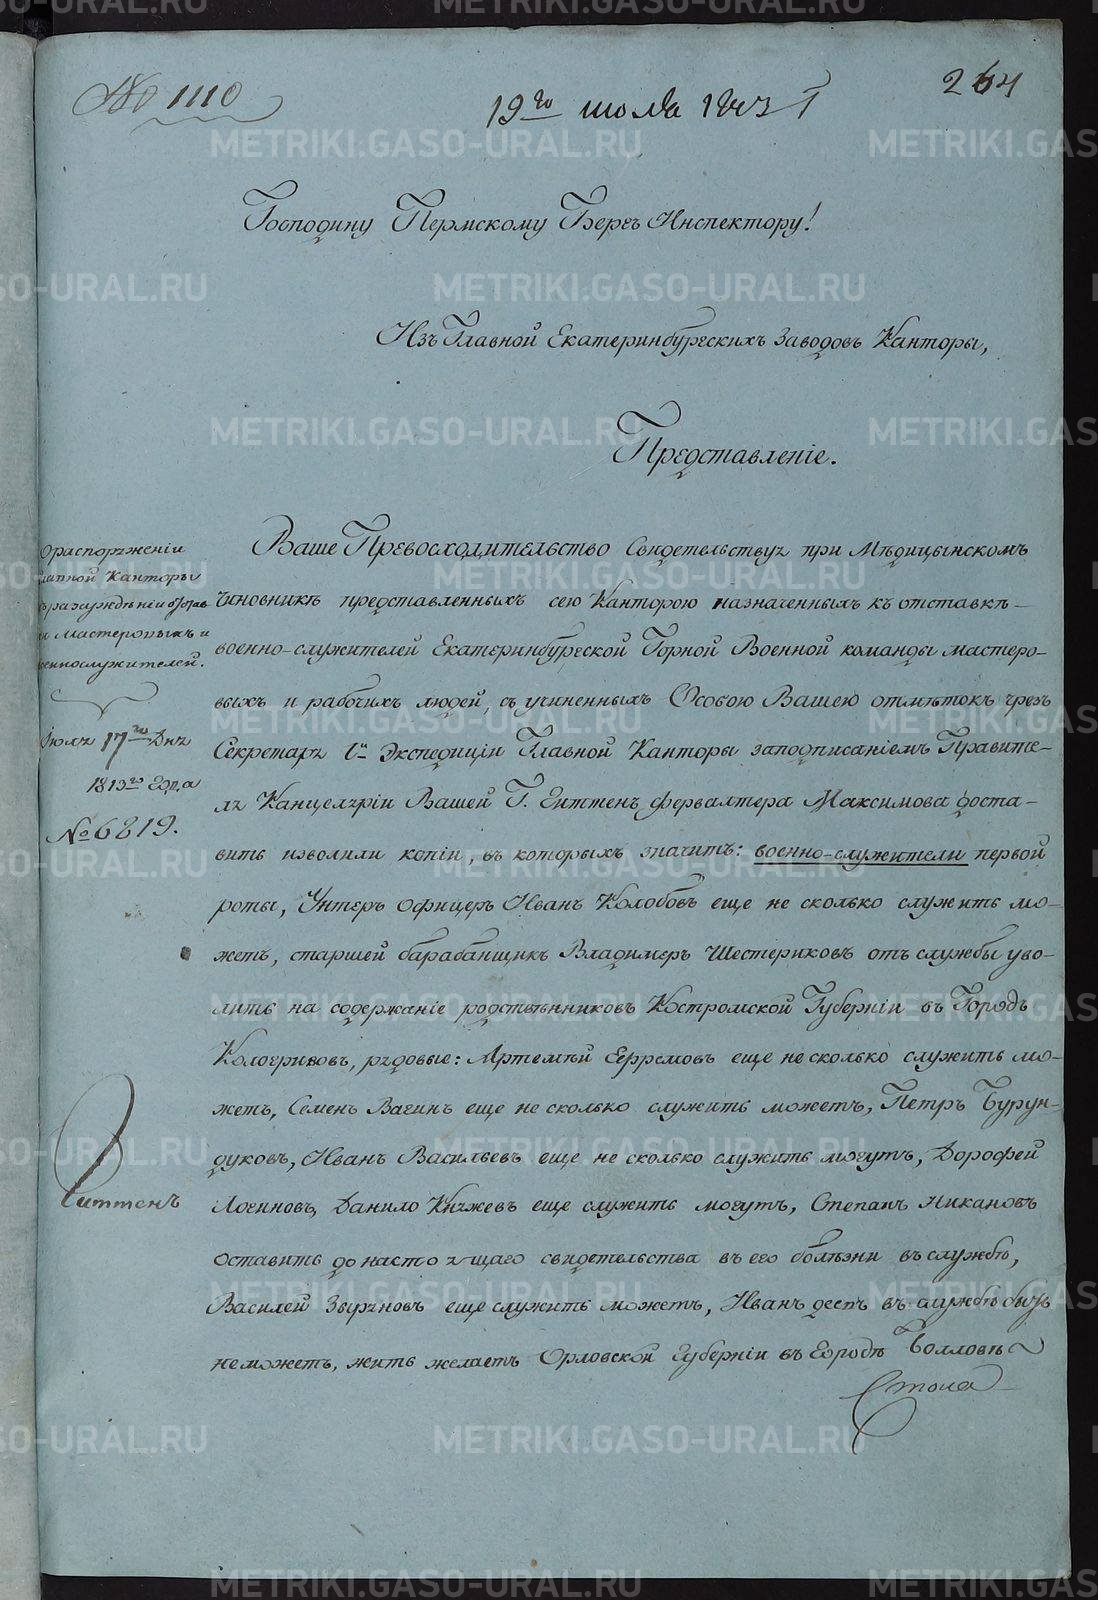 № 1110
19го июля
264
Господину Пермскому Бергъ Инспектору!
Изъ Главной Екатеринбургскихъ Заводовъ Канторы,
Представленіе.
О распоряженіи
Главной Канторы
мастеровыхъ и
военнослужителей.
Июля 17го Дня
1813го Года
№ 6819.
Ваше Превосходительство Свидетельствуя при Мѣдицынскомъ
Чиновникѣ представленныхъ сею Канторою назначенныхъ къ отставкѣ
военно-служителей Екатеринбургской Горной Военной команды мастеро-
выхъ и рабочихъ людей, съ учиненныхъ Особою Вашею отмѣтокъ чрезъ
Секретаря 1й Экспедиціи Главной Канторы заподписаніемъ Правите-
ля Канцеляріи Вашей Г. Гиттенъ фервалтера Максимова доста-
вить изволили копіи, въ которыхъ значитъ: военно-служители первой
роты, Унтеръ офицеръ Иванъ Колобовъ еще не сколько служить мо-
жетъ, старшей барабанщикъ Владимеръ Шестериковъ отъ службы уво-
лить на содержаніе родственниковъ Костромской Губерніи въ Городъ
Кологривовъ, рядовые: Артемѣй Ефремовъ еще не сколько служить мо-
жетъ, Семенъ Вагинъ еще не сколько служить можетъ, Петръ Бурун-
дуковъ, Иванъ Васильевъ еще не сколько служить могутъ, Дорофей
Логиновъ, Данило Княжевъ еще служить могутъ, Степанъ Никановъ
оставить до настоящаго свидетельства въ его болѣзни въ службѣ,
Василей Звѣряновъ еще служить можетъ, Иванъ въ службѣ быть
не можетъ, жить желаетъ Орловской Губерніи въ Городѣ Болховѣ
Гиттенъ